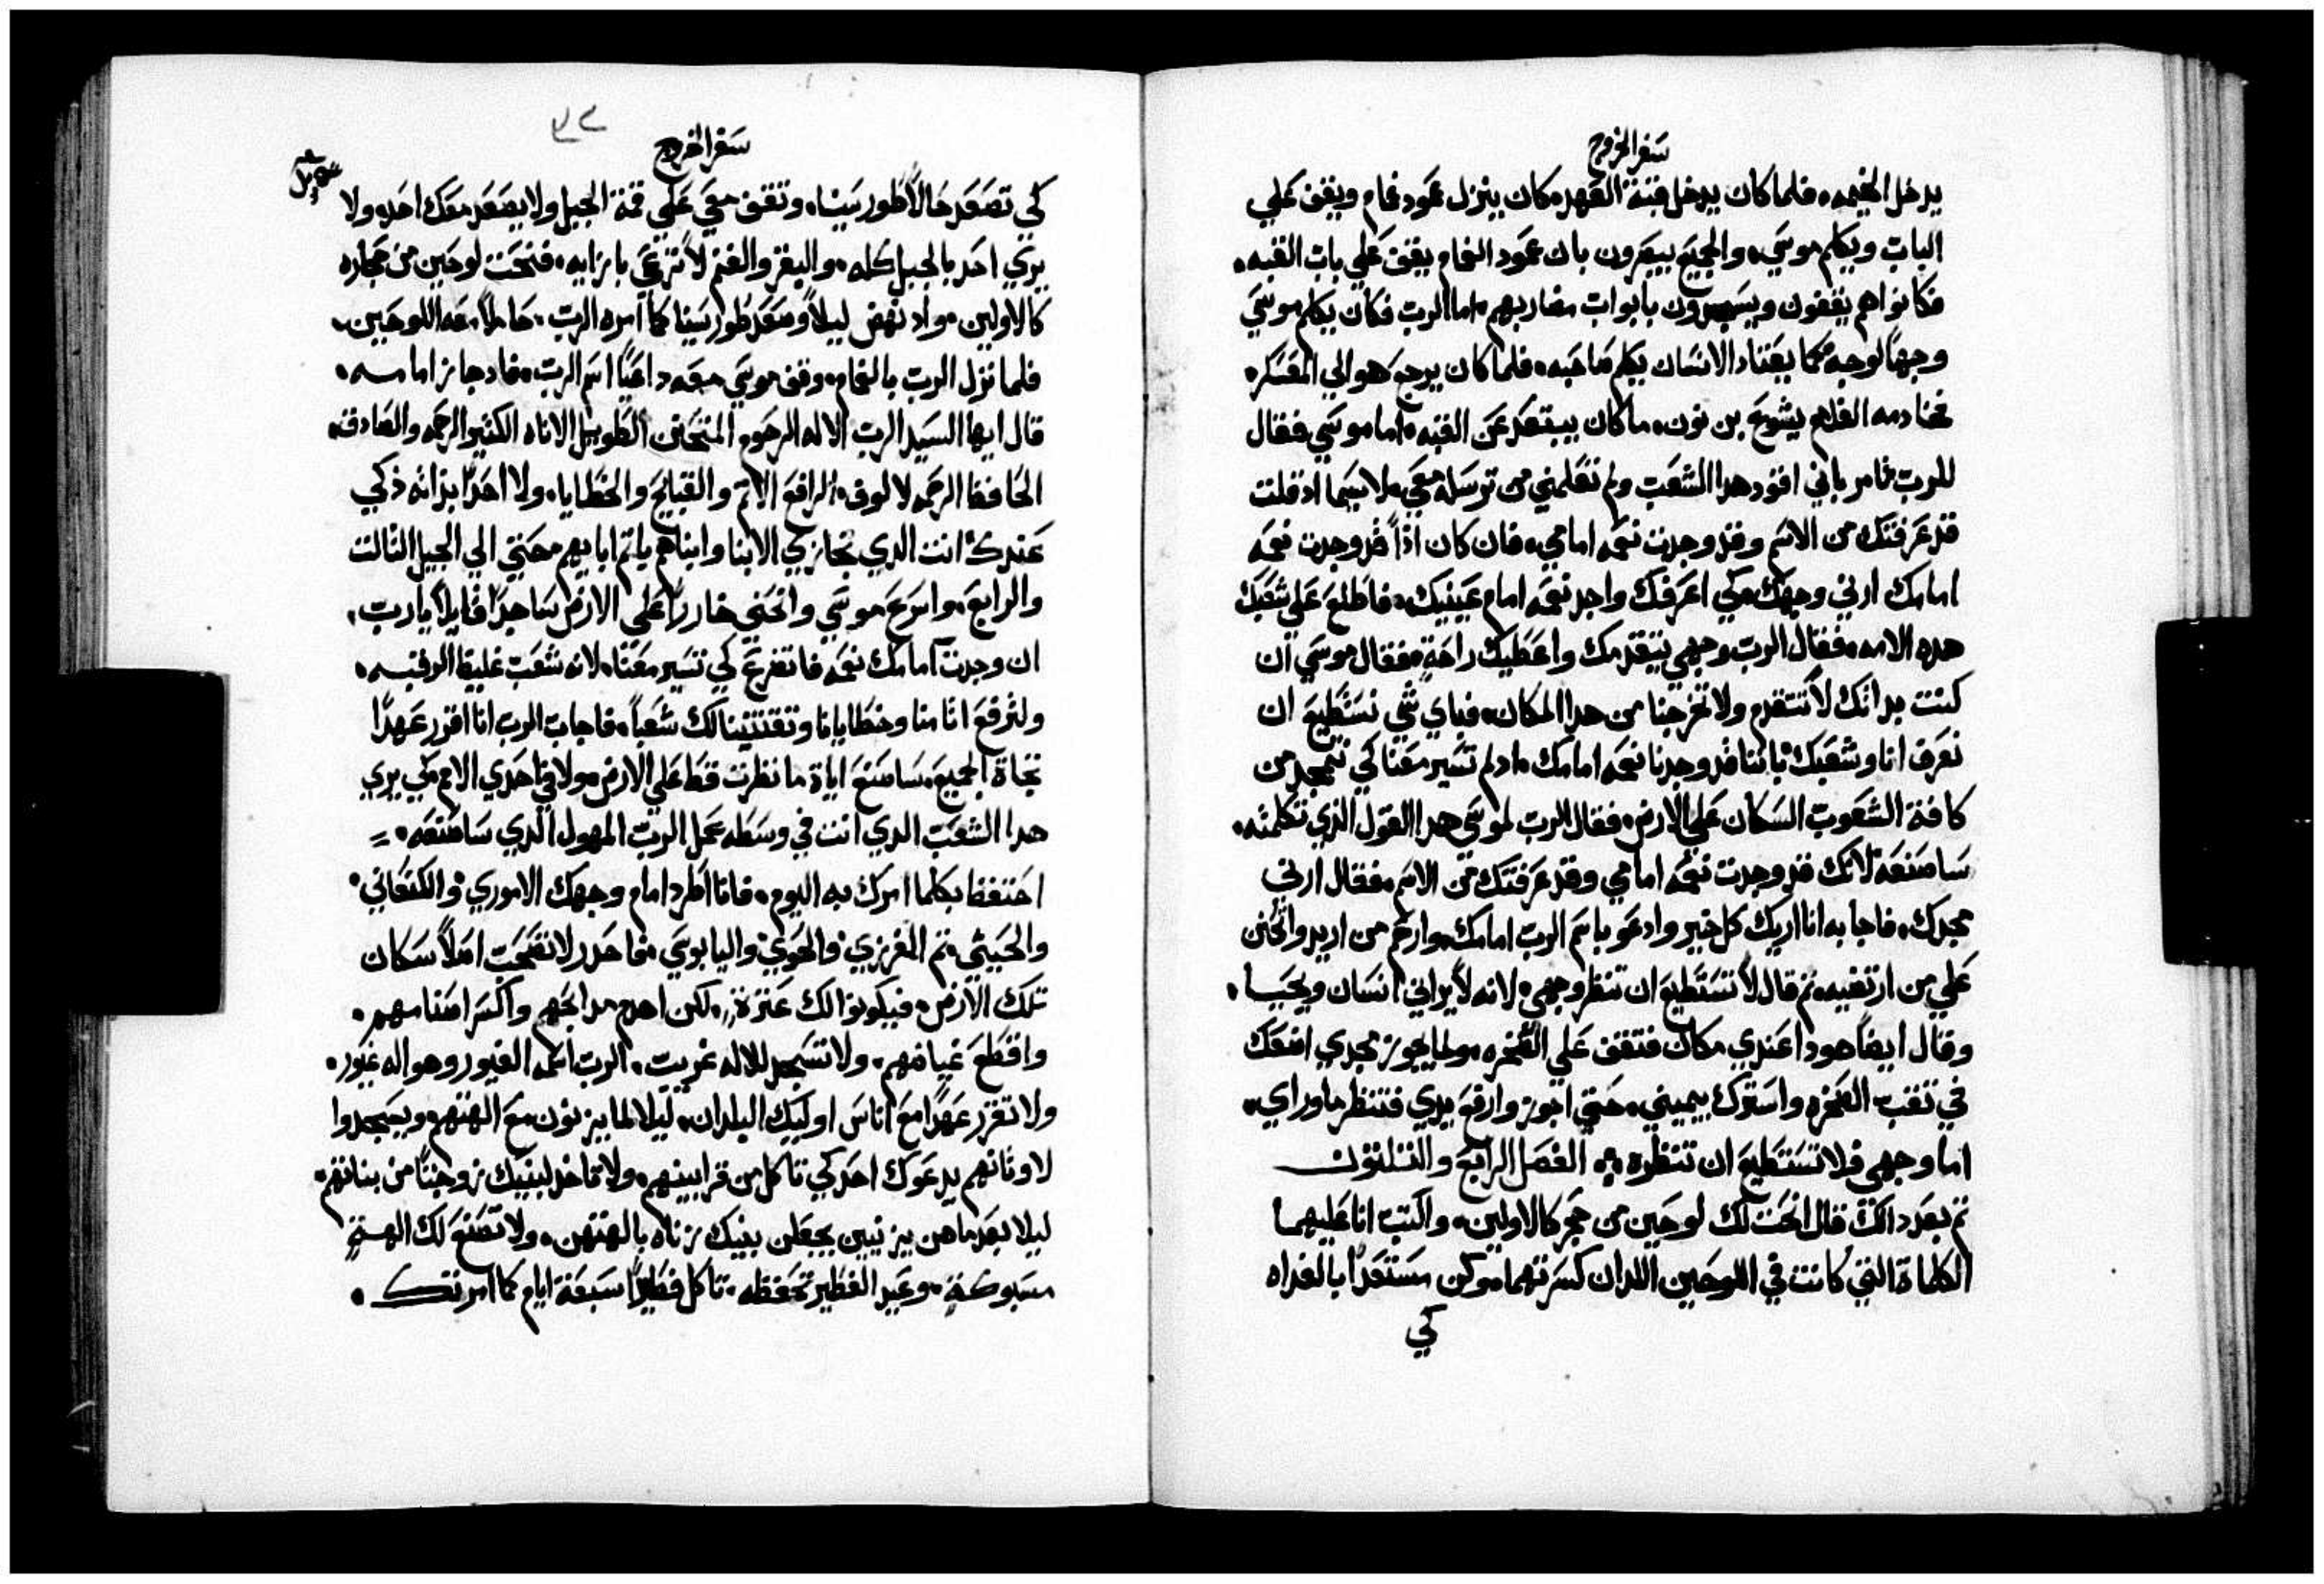 سفر الخروج
يدخل الخيمه، فلما كان يدخل قبة العهد، كان ينزل عمود غمام ويقف علي
الباب ويكلم موسي، والجميع يبصرون بان عمود الغمام يقف علي باب القبه،
فكانوا هم يقفون ويسجدون بابواب مضاربهم، اما الرب فكان يكلم موسي
وجهاً لوجه كما يعتاد الانسان يكلم صاحبه، فلما كان يرجع هو الي المعسكر،
فخادمه الغلام يشوع بن نون، ما كان يبتعد عن القبه، اما موسي فقال
للرب تامر باني اقود هدا الشعب ولم تعلمني من ترسله معي، لا سيما اد قلت
قد عرفتك من الاسم وقد وجدت نعمه امامي، فان كان اذاً قد وجدت نعمه
امامك ارني وجهك، كي اعرفك واجد نعمه امام عينيك، فاطلع علي شعبك
هده الامه، فقال الرب وجهي يتقدمك واعطيك راحةٍ، فقال موسي ان
كنت بداتك لا تتقدم ولا تخرجنا من هدا المكان، فباي شي نستطيع ان
نعرف انا وشعبك باننا قد وجدنا نعمه امامك، اد لم تسير معنا كي نتمجد من
كافة الشعوب السكان علي الارض، فقال الرب لموسي هدا القول الذي تكلمته،
ساصنعه لانك قد وجدت نعمه امامي وقد عرفتك من الاسم، فقال ارني
مجدك، فاجابه انا اريك كل خير وادعو باسم الرب امامك، وارحم من اريد واتحنن
علي من ارتضيه، ثم قال لا تستطيع ان تنظر وجهي، لانه لا يراني انسان ويحيا،
وقال ايضاً هودا عندي مكان فتقف علي الصخره، ولما يجوز مجدي اضعك
في ثقب الصخره واسترك بيميني، حتي اجوز وارفع يدي فتنظر ما وراي،
اما وجهي فلا تستطيع ان تنظره، الفصل الرابع والثلثون
ثم بعد دالك قال انحت لك لوحين من حجر كالاولين، واكتب انا عليهما
الكلماة التي كانت في اللوحين اللدان كسرتهما، وكن مستعداً بالغداه
كي
٩٢
سفر الخروج
كي تصعد حالاً طور سينا، وتقف معي علي قمة الجبل ولا يصعد معك احد، ولا
يري احد بالجبل كله، والبقر والغنم لا ترعي بازايه، فنحت لوحين من حجاره
كالاولين، واد نهض ليلاً وصعد طور سينا كما امره الرب، حاملاً معه اللوحين،
فلما نزل الرب بالغمام، وقف موسي معه داعياً اسم الرب، فاد جاز امامه،
قال ايها السيد الرب الاله الرحوم المتحنن الطويل الاناه الكثير الرحمه والصادق،
الحافظ الرحمه لالوف، الرافع الاثم والقبايح والخطايا، ولا احداً بذاته ذكي
عندك، انت الدي تجازي الابنا وابناهم باثم ابايهم، حتي الي الجيل الثالث
والرابع، واسرع موسي وانحني خاراً علي الارض ساجداً قايلاً يا رب،
ان وجدت امامك نعمه فاتضرع كي تسير معنا، لانه شعب غليظ الرقبه،
ولترفع اثامنا وخطايانا وتقتنينا لك شعباً، فاجاب الرب انا اقرر عهداً
تجاة الجميع، ساصنع اياة ما نظرت قط علي الارض، ولا في احدي الامم، كي يري
هدا الشعب الدي انت في وسطه عمل الرب المهول الدي ساصنعه،
احتفظ بكلما امرك به اليوم، فانا اطرد امام وجهك الاموري، والكنعاني،
والحيثي، ثم الفرزي، والحوي، واليابوسي، فاحدر لا تصحب اصلاً سكان
تلك الارض، فيكونوا لك عثرةً، لكن اهدم مدابحهم، واكسر اصنامهم،
واقطع غياضهم، ولا تسجد للاله غريب، الرب اسمه الغيور وهو اله غيور،
ولا تقرر عهداً مع اناس اوليك البلدان، ليلا لما يزنون مع الهتهم، ويسجدوا
لاوثانهم يدعوك احد كي تاكل من قرابينهم، ولا تاخد لبنيك زوجتاً من بناتهم،
ليلا بعد ما هن يزنين يجعلن بنيك زناه بالهتهن، ولا تصنع لك الهةٍ
مسبوكةٍ، وعيد الفطير تحفظه، تاكل فطيراً سبعة ايام كما امرتك،